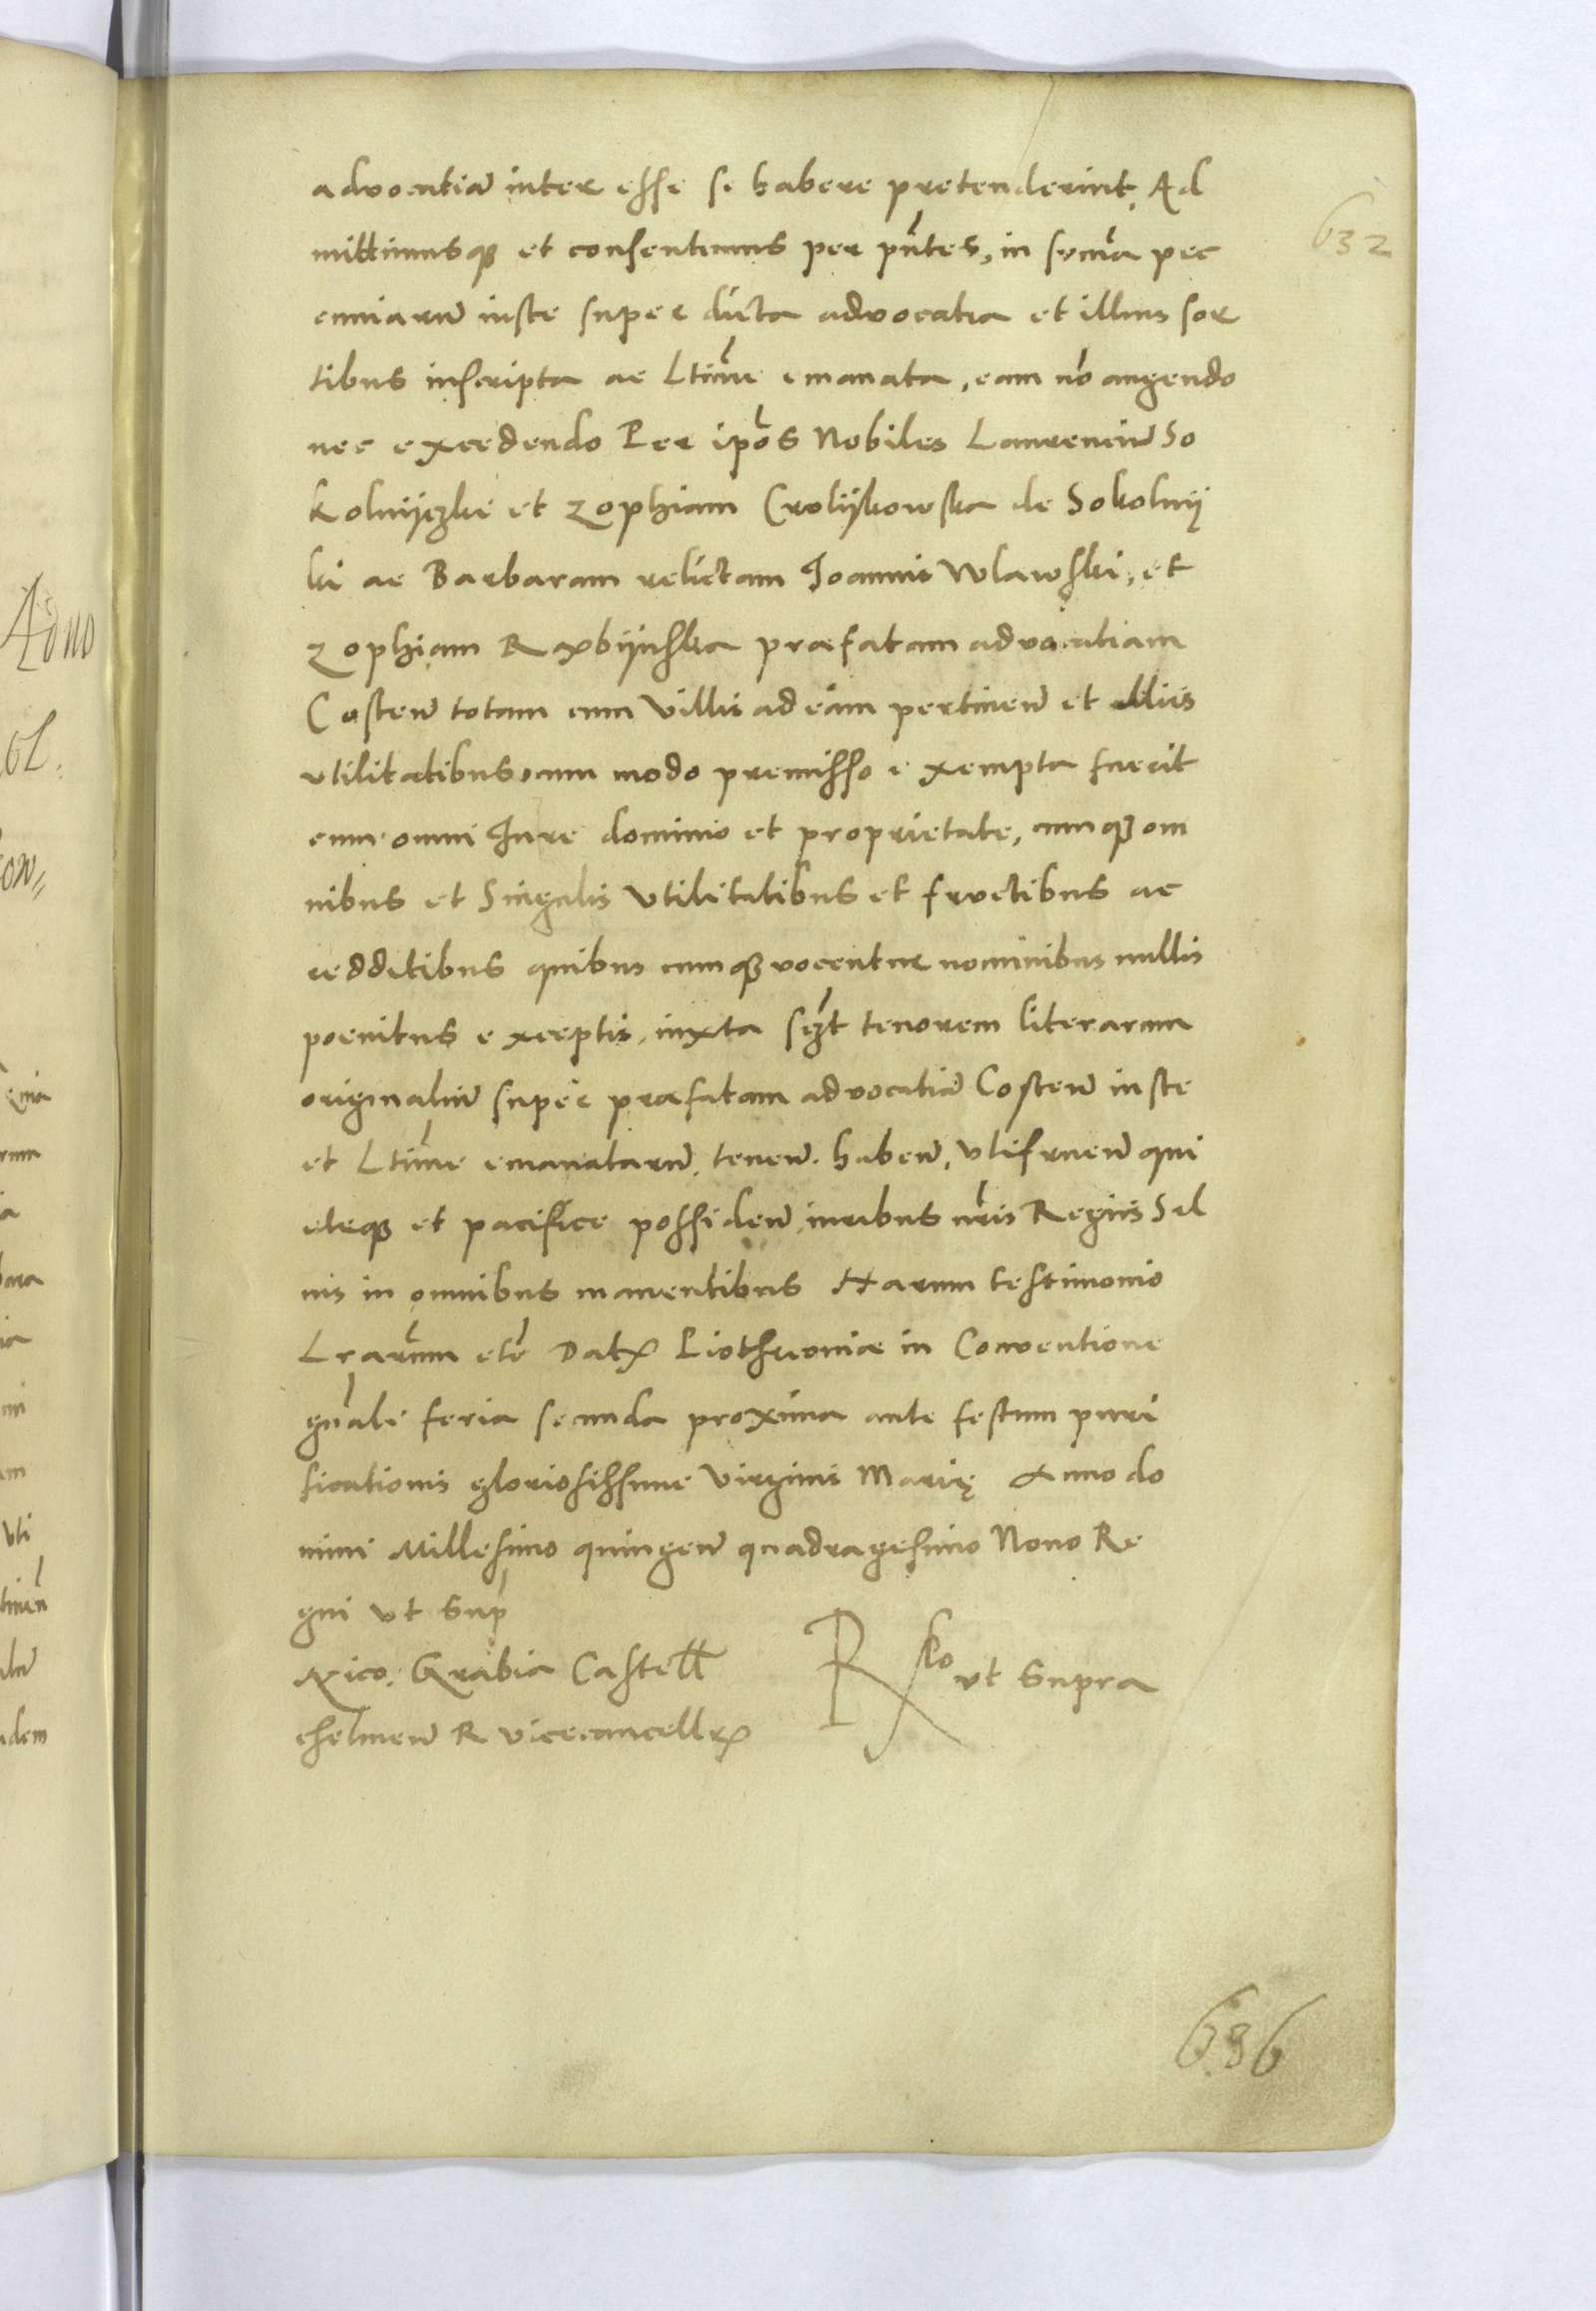 632
advocatiā inter esse se habere pretenderint, Ad
mittimusqꝫ et consentimus per pñtes, in sūma pec
cuniarū iuste super dicta advocatia et illius sor
tibus inscripta ac Ltīme emanata, eam nō augendo
nec excedendo Per ipōs Nobiles Laurenciū So
kolnijczki et Zophiam Crolijkowska de Sokolnij
ki ac Barbaram relictam Joannis Wlawski, et
Zophiam Rxbijnska præfatam advocatiam
Costeñ totam cum villis ad eam pertineñ et aliis
utilitatibus, cum modo premisso exempta fuerit
cum omni Jure dominio et proprietate, cumqꝫ om
nibus et Singulis utilitatibus et fructibus ac
redditibus quibuscumqꝫ vocentur nominibus nullis
poenitus exceptis, iuxta sczt tenorem literarum
originaliū super præfatam advocatiā Costeñ iuste
et Ltīme emanatarū, teneñ. habeñ, utifrueñ qui
eteqꝫ et pacifice possideñ, iuribus nr̃is Regiis Sal
vis in omnibus manentibus Harum testimonio
Lrarūm etc̄ Datꝝ Piothrcoviæ in Conventione
gnāli feria secunda proxima ante festum puri
ficationis gloriosissime Virginis Marię Anno do
mini Millesimo quingeñ quadragesimo Nono Re
gni ut Sup̄
Nico: Grabia Castell
chelmeñ R vicecancellrꝫ
Rlo ut Supra
686